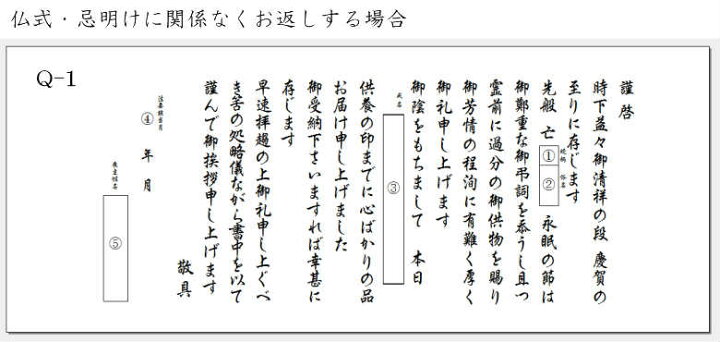 仏式・忌明けに関係なくお返しする場合
Q-1
謹啓
時下益々御清祥の段 慶賀の
至りに存じます
先般 亡 続柄 ① 俗名 ② 永眠の節は
御鄭重な御弔詞を忝うし且つ
霊前に過分の御供物を賜り
御芳情の程洵に有難く厚く
御礼申し上げます
御陰をもちまして 本日
戒名 ③
供養の印までに心ばかりの品
お届け申し上げました
御受納下さいますれば幸甚に
存じます
早速拝趨の上御礼申し上ぐべ
き筈の処略儀ながら書中を以て
謹んで御挨拶申し上げます
敬具
法要該当月 ④ 年 月
喪主姓名 ⑤